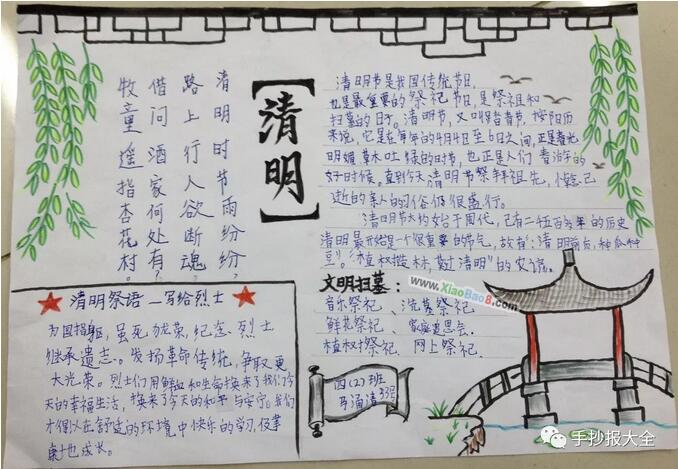 清明时节雨纷纷，
路上行人欲断魂
借问酒家何处有？
牧童遥指杏花村。
【清明】
清明节是我国传统节日，
也是最重要的祭祀节日，是祭祖和
扫墓的日子。清明节，又叫踏青节，按阳历
来说，它是在每年的4月4日至6日之间，正是春光
明媚草木吐绿的时节，也正是人们春游的
好时候。直到今天，清明节祭拜祖先，悼念已
逝的亲人的习俗仍很盛行。
清明节大约始于周代，已有二千五百多年的历史
清明最开始是一个很重要的节气，故有：清明前后，种瓜种
豆。"植树造林，莫过清明"的农谚。
文明扫墓：
音乐祭祀、洗墓祭祀
鲜花祭祀、家庭追思
植树祭祀 网上祭祀
清明祭语—写给烈士
为国捐躯，虽死犹荣，纪念烈士
继承遗志。发扬革命传统，争取更
大光荣。烈士们用鲜血和生命换来了我们今
天的幸福生活，换来了今天的和平与安宁。我们
才得以在舒适的环境中快乐的学习，健
康地成长。
四(2)班
33号
www.XiaoBao8.com
手抄报大全